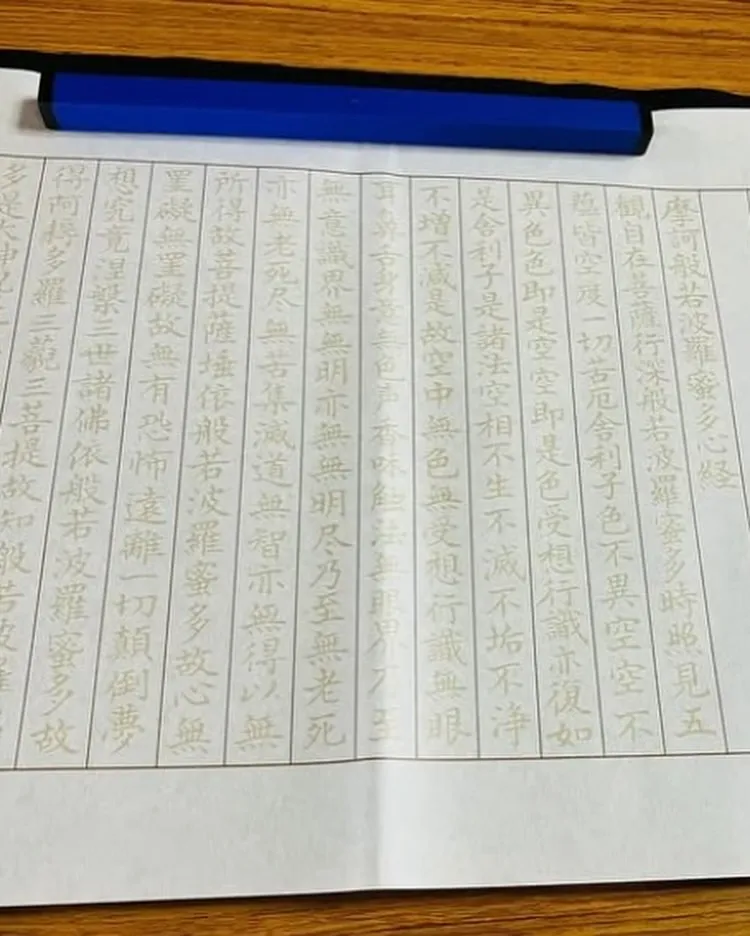 摩訶般若波羅蜜多心経
観自在菩薩行深般若波羅蜜多時照見五
蘊皆空度一切苦厄舎利子色不異空空不
異色色即是空空即是色受想行識亦復如
是舎利子是諸法空相不生不滅不垢不浄
不増不滅是故空中無色無受想行識無眼
耳鼻舌身意無色声香味触法無眼界乃至
無意識界無無明亦無無明尽乃至無老死
亦無老死尽無苦集滅道無智亦無得以無
所得故菩提薩埵依般若波羅蜜多故心無
罣礙無罣礙故無有恐怖遠離一切顛倒夢
想究竟涅槃三世諸佛依般若波羅蜜多故
得阿耨多羅三藐三菩提故知般若波羅
多是大神呪